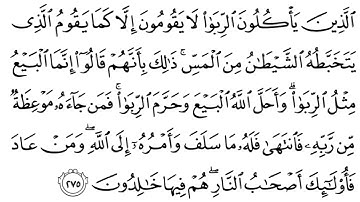 ٱلَّذِينَ يَأْكُلُونَ ٱلرِّبَوٰا۟ لَا يَقُومُونَ إِلَّا كَمَا يَقُومُ ٱلَّذِى
يَتَخَبَّطُهُ ٱلشَّيْطَـٰنُ مِنَ ٱلْمَسِّ ۚ ذَٰلِكَ بِأَنَّهُمْ قَالُوٓا۟ إِنَّمَا ٱلْبَيْعُ
مِثْلُ ٱلرِّبَوٰا۟ ۗ وَأَحَلَّ ٱللَّهُ ٱلْبَيْعَ وَحَرَّمَ ٱلرِّبَوٰا۟ ۚ فَمَن جَآءَهُۥ مَوْعِظَةٌ
مِّن رَّبِّهِۦ فَٱنتَهَىٰ فَلَهُۥ مَا سَلَفَ وَأَمْرُهُۥٓ إِلَى ٱللَّهِ ۖ وَمَنْ عَادَ
فَأُو۟لَـٰٓئِكَ أَصْحَـٰبُ ٱلنَّارِ ۖ هُمْ فِيهَا خَـٰلِدُونَ ٢٧٥